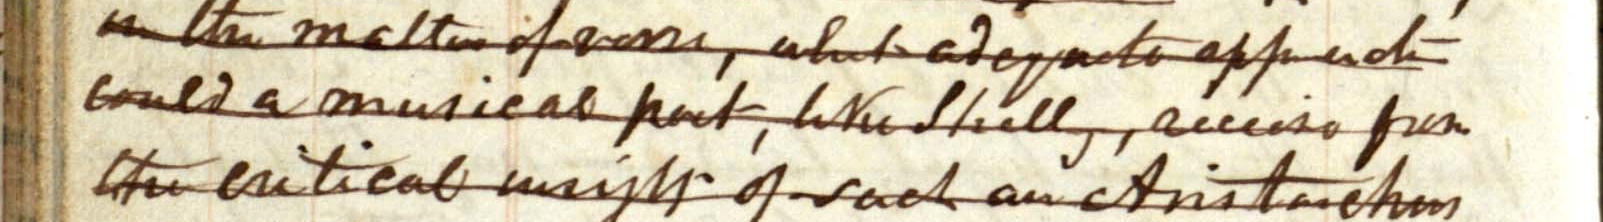 in the matter of verse, what adequate appreciatn
could a musical poet, like Shelley, receive from
the critical insight of such an Aristarchus